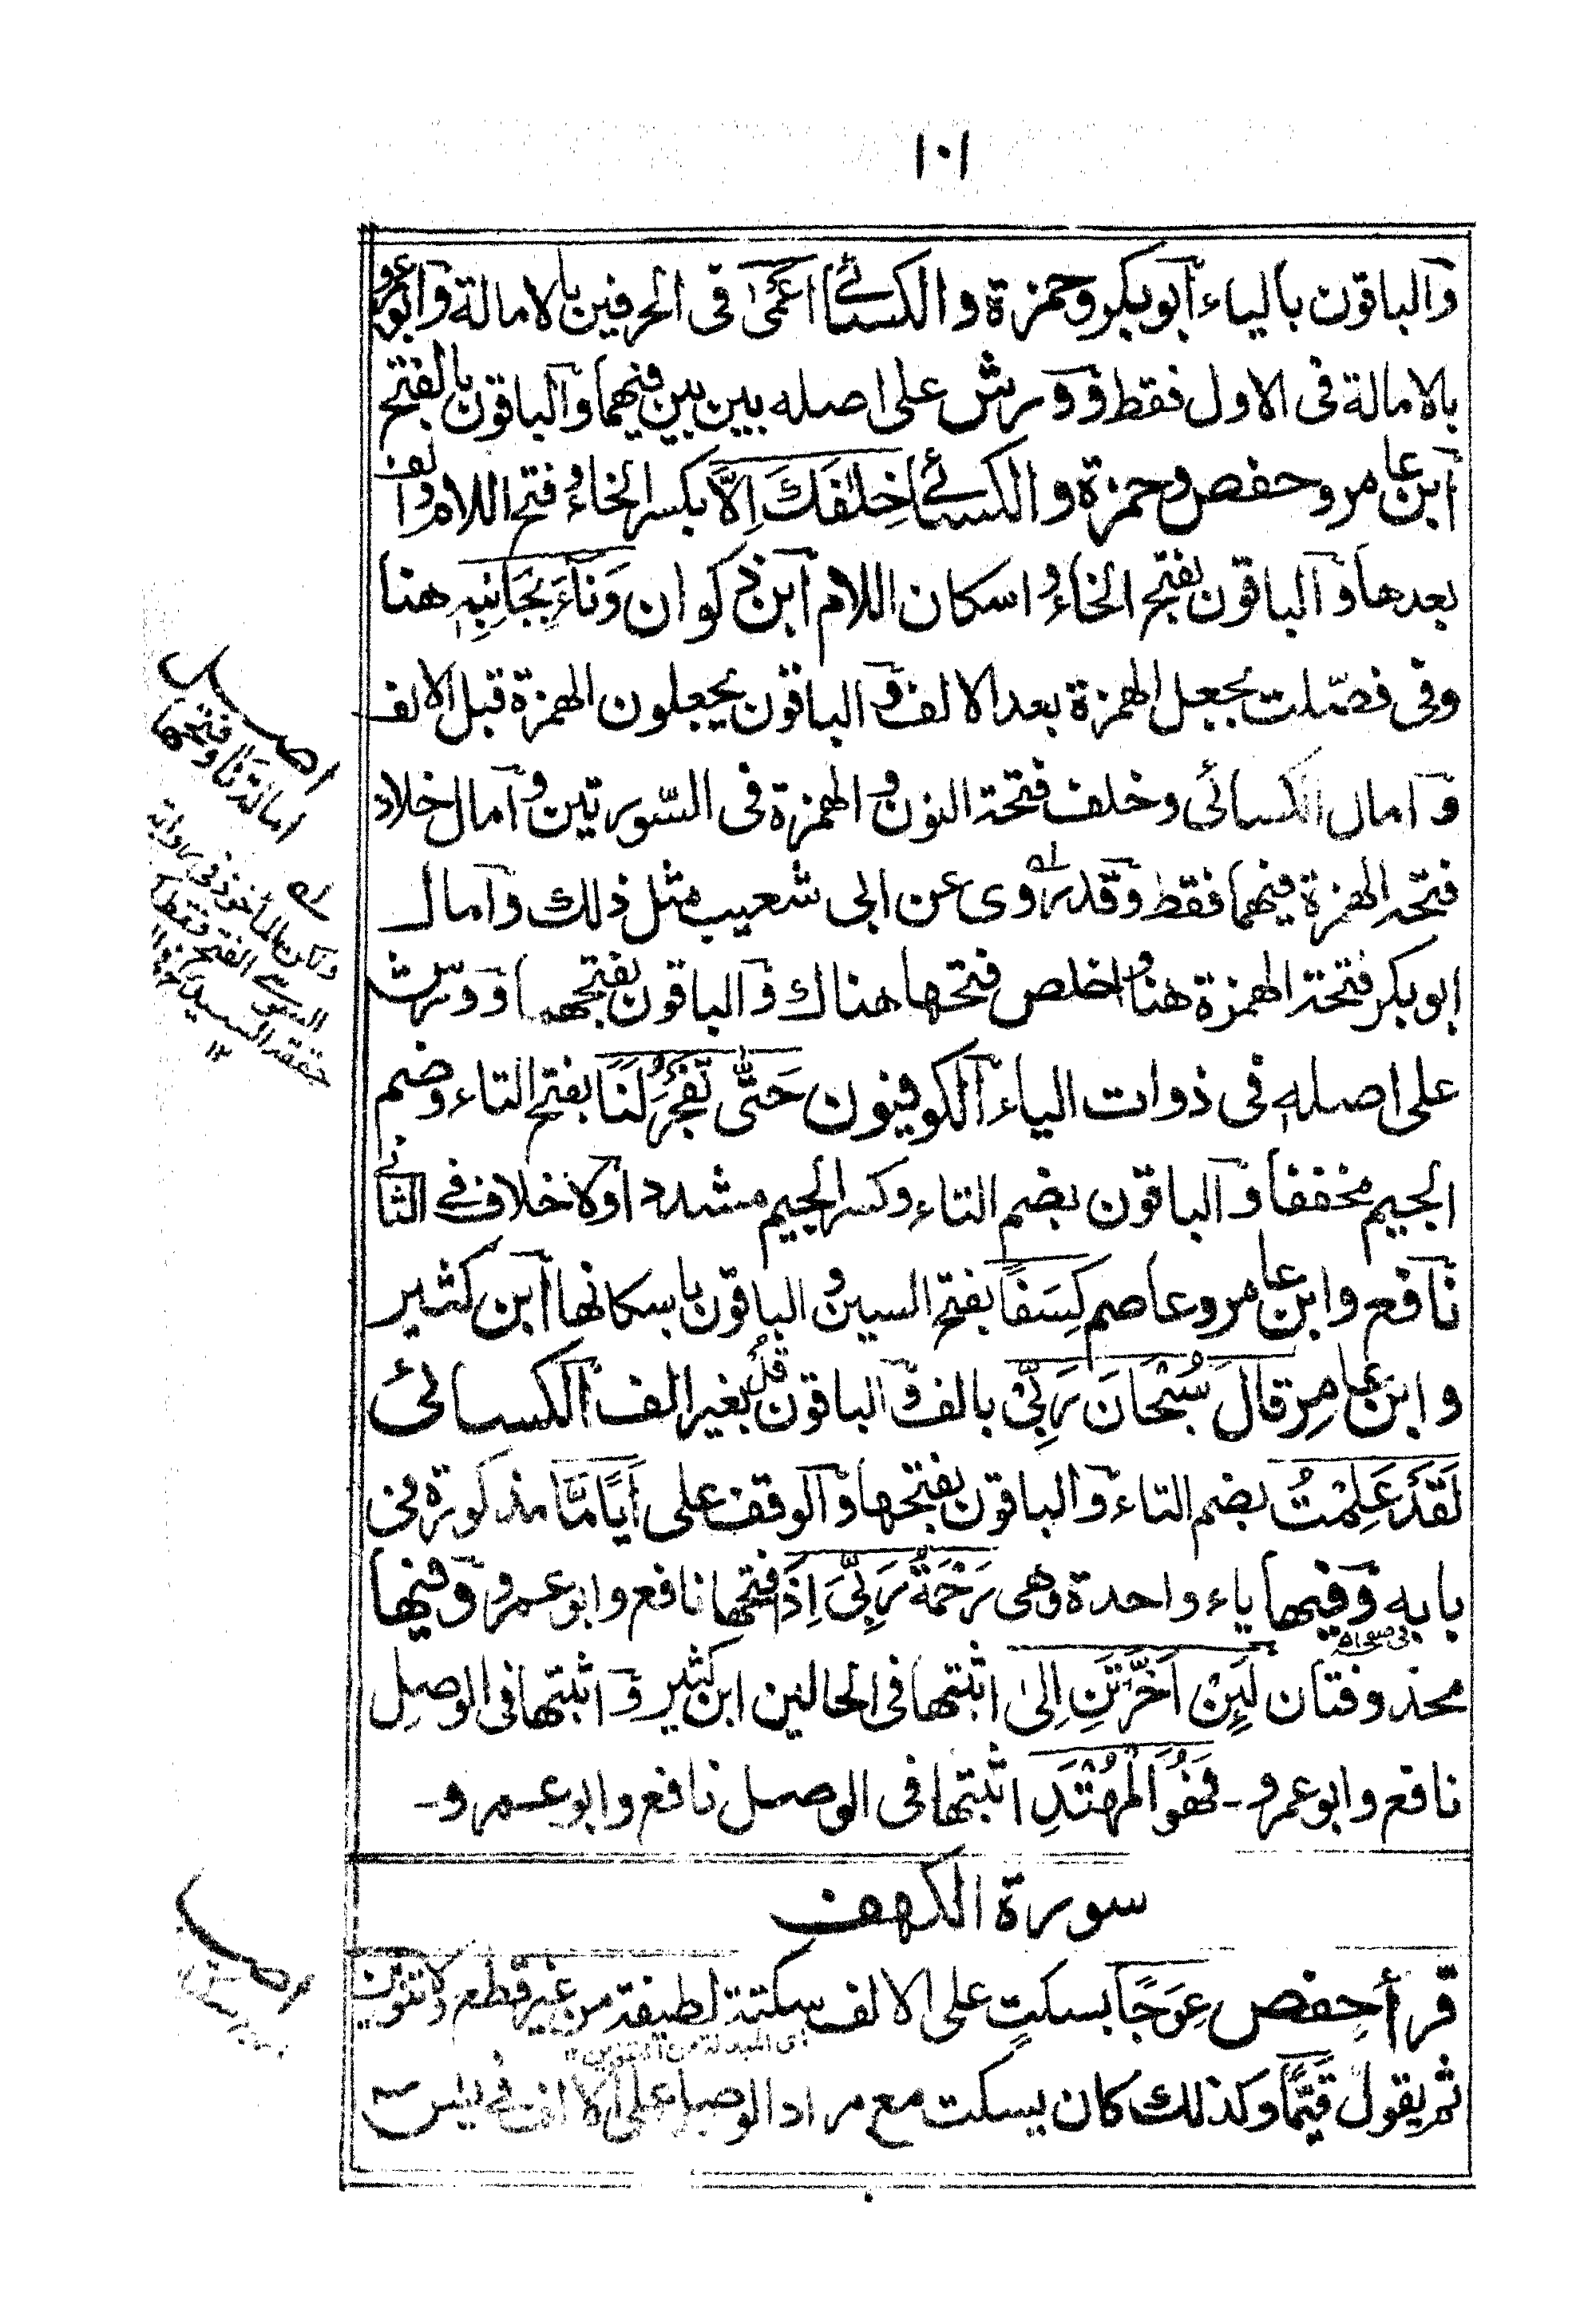 ١٠١
والباقون بالياء ابوبكر وحمزة والكسائى اَعْمٰى فى الحرفين بالامالة وابوعمرو
بالامالة فى الاول فقط وورش على اصله بين بين فيهما والباقون بالفتح
ابن عامر وحفص وحمزة والكسائى خِلٰفَكَ اِلَّا بكسر الخاء وفتح اللام والف
بعدها والباقون بفتح الخاء واسكان اللام ابن ذكوان وَنَاءَ بِجَانِبِهٖ هنا
وفى فصّلت بجعل الهمزة بعد الالف والباقون يجعلون الهمزة قبل الالف
وامال الكسائى وخلف فتحة النون والهمزة فى السّورتين وامال خلاد
فتحة الهمزة فيهما فقط وقد روى عن ابى شعيب مثل ذلك وامال
ابوبكر فتحة الهمزة هنا واخلص فتحها هناك والباقون بفتحهما وورش
على اصله فى ذوات الياء الكوفيون حَتّٰى تَفْجُرَ لَنَا بفتح التاء وضم
الجيم مخففا والباقون بضم التاء وكسر الجيم مشددا ولا خلاف فى الثانى
نافع وابن عامر وعاصم كِسَفًا بفتح السين والباقون باسكانها ابن كثير
وابن عامر قَالَ سُبْحَانَ رَبِّىْ بالف والباقون قُلْ بغير الف الكسائى
لَقَدْ عَلِمْتُ بضم التاء والباقون بفتحها والوقف على اَيًّامَّا مذكورة فى
بابه وفيها ياء واحدة وهى رَحْمَةُ رَبِّىَ اِذًا فتحها نافع وابوعمرو وفيها
محذوفتان لَئِنْ اَخَّرْتَنِ اِلٰى اثبتها فى الحالين ابن كثير واثبتها فى الوصل
نافع وابوعمرو ۔ فَهُوَ الْمُهْتَدِ اثبتها فى الوصل نافع وابوعمرو ۔
سورة الكهف
قرأ حفص عِوَجًا بسكت على الالف سكتة لطيفة من غير قطع ولا تنوين
اى المبدلة من التنوين ١٢
ثم يقول قَيِّمًا وكذلك كان يسكت مع مراد الوصل على الالف فى يٰس
امالة نا وفتحها
ولكن المأخوذ فى رواية
السوسى الفتح فقط